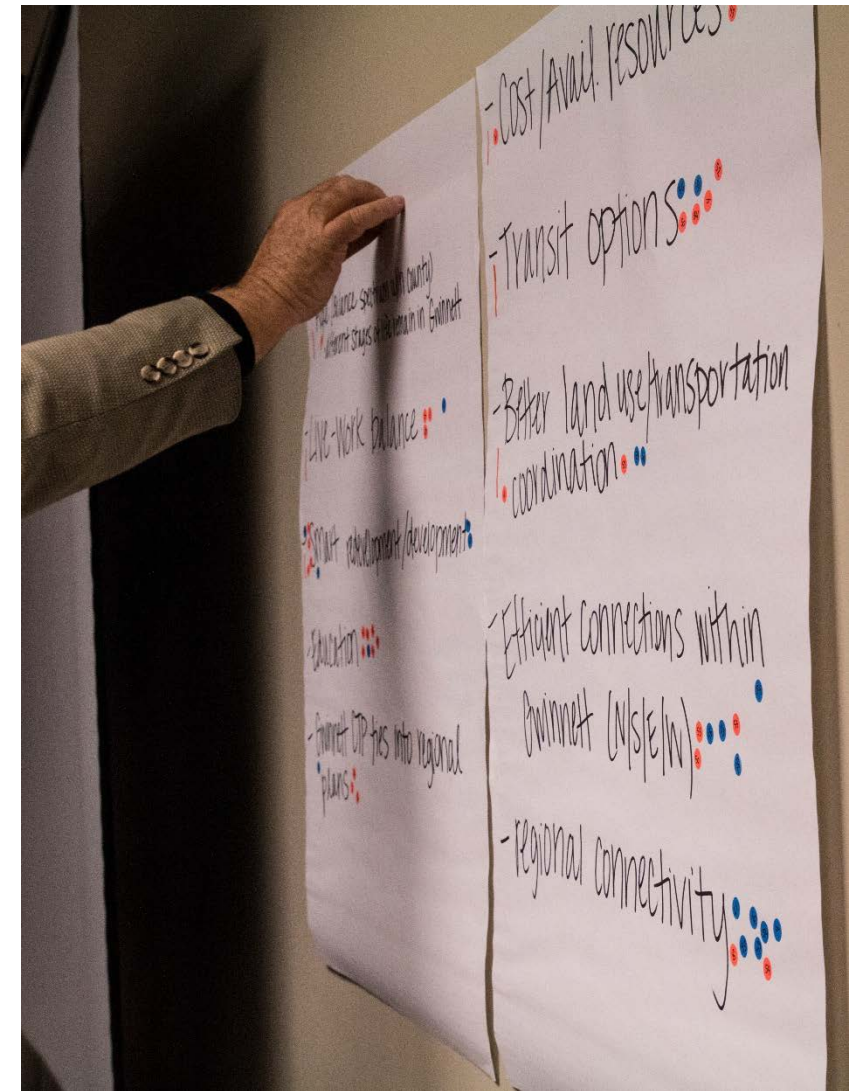 balance spectrum w/in county)
different stages of life remain in Gwinnett
-Live-Work balance
-Smart redevelopment/development
-Education
-Gwinnett CTP ties into regional
plans
-Cost/Avail. resources
-Transit options
-Better land use/transportation
coordination
-Efficient connections within
Gwinnett (N/S/E/W)
-regional connectivity